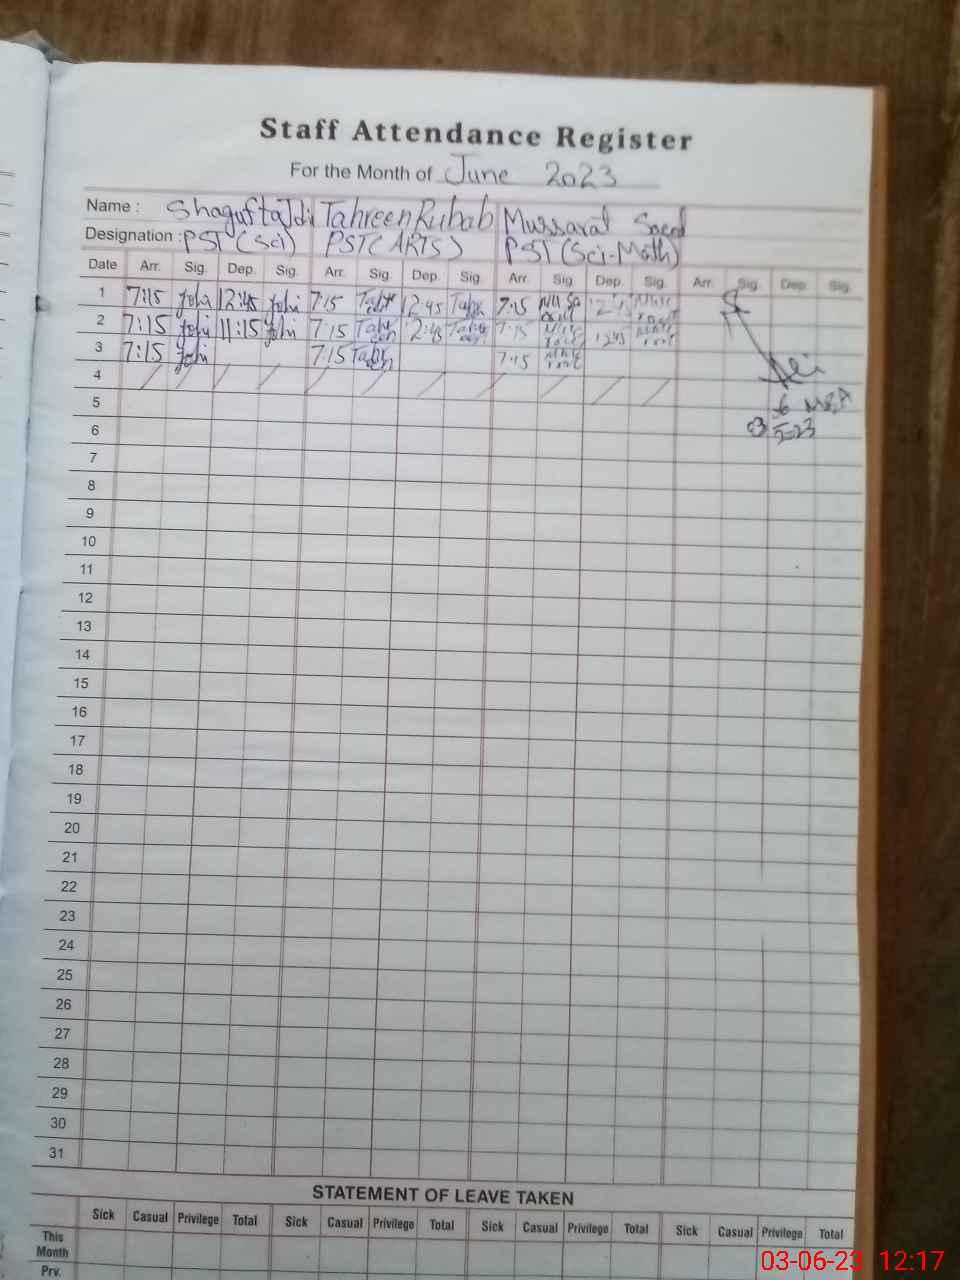 Staff Attendance Register
For the Month of June 2023
Name : Shagufta Tahreen Rubab Mussarat Saeed
Designation : PST (Sci) PST (ARTS) PST (Sci-Math)
Date Arr. Sig. Dep. Sig. Arr. Sig. Dep. Sig. Arr. Sig. Dep. Sig. Arr. Sig. Dep. Sig.
1 7:15 12:45 7:15 12:45 7:15
2 7:15 11:15 7:15 12:45 7:15 12:45
3 7:15 7:15 7:15
4
5
6
7
8
9
10
11
12
13
14
15
16
17
18
19
20
21
22
23
24
25
26
27
28
29
30
31
STATEMENT OF LEAVE TAKEN
Sick Casual Privilege Total Sick Casual Privilege Total Sick Casual Privilege Total Sick Casual Privilege Total
This
Month
Prv.
03-06-23 12:17